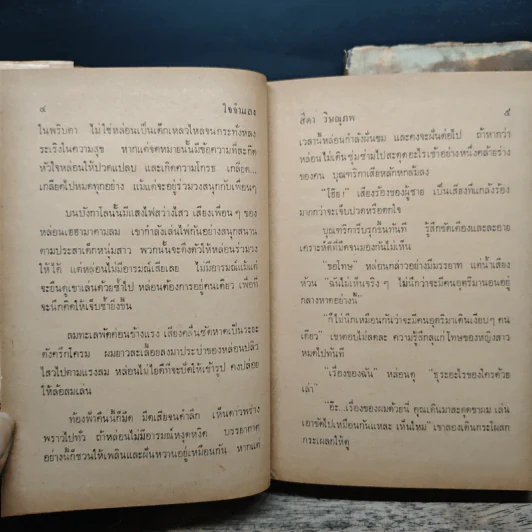 ๔ ใจจำแลง
ในพริบตา ไม่ใช่หล่อนเป็นเด็กเหลวไหลจนกระทั่งหลง
ระเริงในความสุข หากแต่จดหมายนั้นมีข้อความที่สะกิด
หัวใจหล่อนให้ปวดแปลบ และเกิดความโกรธ เกลียด...
เกลียดไปหมดทุกอย่าง แม้แต่จะอยู่ร่วมวงสนุกกับเพื่อนๆ
บนบังกาโลนั้นมีแสงไฟสว่างไสว เสียงเพื่อนๆ ของ
หล่อนเฮฮามาตามลม เขากำลังเล่นไพ่กันอย่างสนุกสนาน
ตามประสาเด็กหนุ่มสาว พวกนั้นจะดึงตัวให้หล่อนร่วมวง
ให้ได้ แต่หล่อนไม่มีอารมณ์เสียเลย ไม่มีอารมณ์แม้แต่
จะยืนดูเขาเล่นด้วยซ้ำไป หล่อนต้องการอยู่คนเดียว เพื่อที่
จะนึกคิดให้เจ็บช้ำยิ่งขึ้น
ลมทะเลพัดค่อนข้างแรง เสียงคลื่นซัดหาดเป็นระยะ
ดังครึกโครม ผมยาวละเลื้อยลงมาประบ่าของหล่อนปลิว
ไสวไปตามแรงลม หล่อนไม่ใยดีที่จะปัดให้เข้ารูป คงปล่อย
ให้ล้อลมเล่น
ท้องฟ้าคืนนี้ก็มืด มืดเสียจนดำลึก เห็นดาวพร่าง
พราวไปทั่ว ถ้าหล่อนไม่มีอารมณ์หงุดหงิด บรรยากาศ
อย่างนี้ก็ชวนให้เพลินและฝันหวานอยู่เหมือนกัน หากแต่
สีดา วิษณุภพ ๕
เวลานี้หล่อนกำลังฝันขม และคงจะฝันต่อไป ถ้าหากว่า
หล่อนไม่เดินซุ่มซ่ามไปสะดุดอะไรเข้าอย่างหนึ่งคล้ายร่าง
ของคน บุณฑริกาเสียหลักหกล้มลง
“โอ๊ย!” เสียงร้องของผู้ชาย เป็นเสียงที่แกล้งร้อง
มากกว่าจะเจ็บปวดหรือตกใจ
บุณฑริการีบรุกขึ้นทันที รู้สึกขัดเคืองและละอาย
เคราะห์ดีที่มืดจนมองกันไม่เห็น
“ขอโทษ” หล่อนกล่าวอย่างมีมรรยาท แต่น้ำเสียง
ห้วน “ฉันไม่เห็นจริงๆ ไม่นึกว่าจะมีคนอุตริมานอนอยู่
กลางหาดอย่างนี้”
“ก็ไม่นึกเหมือนกันว่าจะมีคนอุตริมาเดินเงียบๆ คน
เดียว” เขาตอบไม่ลดละ ความรู้สึกลุแก่โทษของหญิงสาว
หมดไปทันที
“เรื่องของฉัน” หล่อนดุ “ธุระอะไรของใครด้วย
เล่า”
“อ๊ะ..เรื่องของผมด้วยซี คุณเดินมาสะดุดขาผม เล่น
เอาขัดไปเหมือนกันแหละ เห็นไหม” เขาลองเดินกระโผลก
กระเผลกให้ดู